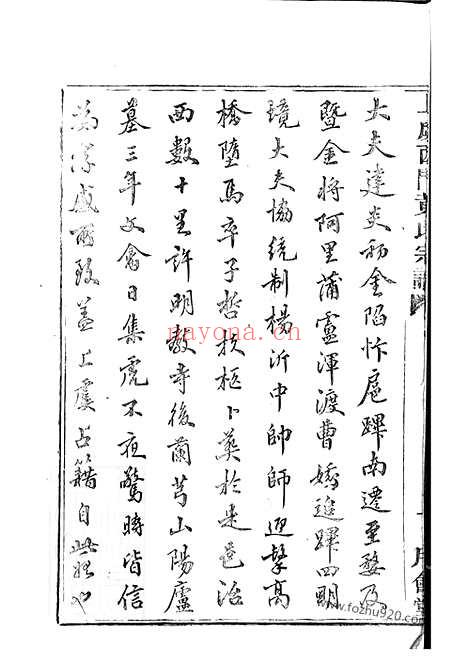 上虞西門黃氏宗譜
大夫達炎初金陷忭扈蹕南遷至婺及
暨金將阿里蒲盧渾渡曹娥追蹕四明
境大夫協統制楊沂中帥師迎擊高
橋墮馬卒子哲扶柩卜葬於是邑治
西數十里許明教寺後蘭芎山陽廬
墓三年文禽日集虎不夜驚時皆信
為孝感所致蓋上虞占籍自此始也
nayona.cn
www.fozhu920.com